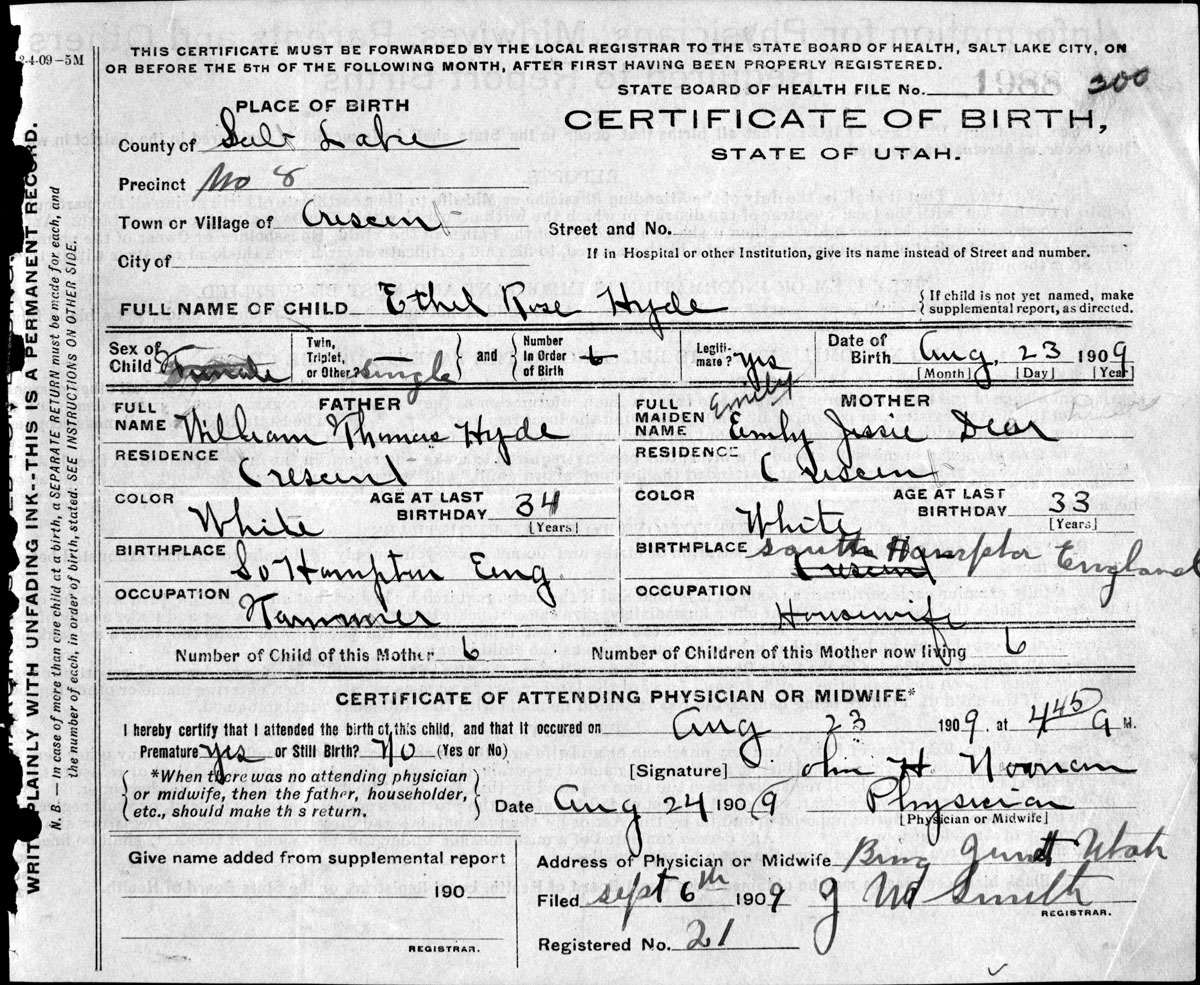 2-4-09-5M
THIS CERTIFICATE MUST BE FORWARDED BY THE LOCAL REGISTRAR TO THE STATE BOARD OF HEALTH, SALT LAKE CITY, ON
OR BEFORE THE 5TH OF THE FOLLOWING MONTH, AFTER FIRST HAVING BEEN PROPERLY REGISTERED.
STATE BOARD OF HEALTH FILE No. 300
PLACE OF BIRTH
CERTIFICATE OF BIRTH,
STATE OF UTAH.
County of Salt Lake
Precinct No 8
Town or Village of Crescent
Street and No.
City of
If in Hospital or other Institution, give its name instead of Street and number.
FULL NAME OF CHILD Ethel Rose Hyde
If child is not yet named, make
supplemental report, as directed.
Sex of
Child Female
Twin,
Triplet,
or Other? Single
and
Number
in Order
of Birth 6
Legiti-
mate? Yes
Date of
Birth Aug, 23 1909
[Month] [Day] [Year]
FATHER
FULL
NAME William Thomas Hyde
RESIDENCE
Crescent
COLOR
White
AGE AT LAST
BIRTHDAY 34
[Years]
BIRTHPLACE
So Hampton Eng.
OCCUPATION
MOTHER
FULL
MAIDEN
NAME Emily
Emily Jessie Dear
RESIDENCE
Crescent
COLOR
White
AGE AT LAST
BIRTHDAY 33
[Years]
BIRTHPLACE South Hampton England
Crescent
OCCUPATION
Housewife
Number of Child of this Mother 6
Number of Children of this Mother now living 6
CERTIFICATE OF ATTENDING PHYSICIAN OR MIDWIFE*
I hereby certify that I attended the birth of this child, and that it occured on Aug 23 1909. at 4 45 a M.
Premature yes or Still Birth? No (Yes or No)
*When there was no attending physician
or midwife, then the father, householder,
etc., should make th s return.
[Signature] John H. Noonan
Date Aug 24 1909 Physician
[Physician or Midwife]
Give name added from supplemental report
190
REGISTRAR.
Address of Physician or Midwife Utah
Filed Sept 6th 1909 Smith
REGISTRAR.
Registered No. 21
WRITE PLAINLY WITH UNFADING INK--THIS IS A PERMANENT RECORD.
N. B. — In case of more than one child at a birth, a SEPARATE RETURN must be made for each, and
the number of each, in order of birth, stated. SEE INSTRUCTIONS ON OTHER SIDE.